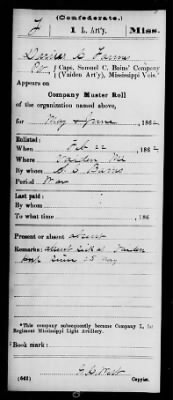 (Confederate.)
1 L. Art'y.
Miss.
Pvt, Capt. Samuel C. Bains' Company
(Vaiden Art'y), Mississippi Vols.*
Appears on
Company Muster Roll
of the organization named above,
for May & June, 1862
Enlisted:
When Feb 22, 1862
Where Vaiden
By whom S. C. Bains
Period War
Last paid:
By whom
To what time, 186
Present or absent absent
Remarks: absent sick at Vaiden
since 15 May
*This company subsequently became Company L, 1st
Regiment Mississippi Light Artillery.
Book mark:
West
(642)
Copyist.